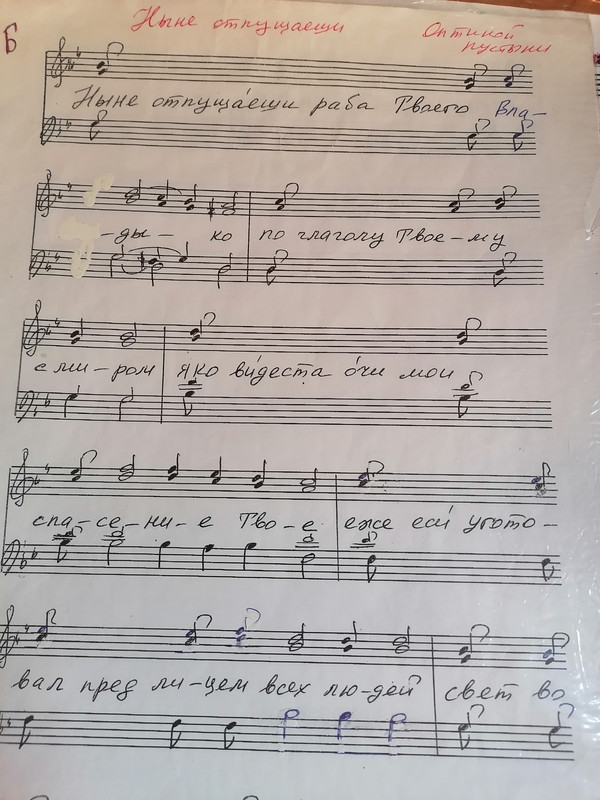 Б
Ныне отпущаеши
Оптиной
пустыни
Ныне отпуща́еши раба Твоего Вла-
-ды- ко по глаголу Твое-му
с ми-ром яко ви́деста о́чи мои
спа-се-ни-е Тво-е еже еси́ угото-
вал пред ли-цем всех лю-дей свет во